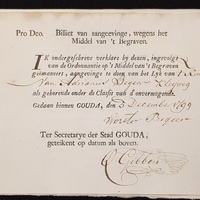 Pro Deo. Billiet van aangevinge, wegens het
Middel van 't Begraven.
IK ondergeschreve verklare by dezen, ingevolgt
van de Ordonnantie op 't Middel van 't Begraven
geëmaneert, aangevinge te doen van het Lyk van 't Kind
van Adrianus
als gehorende onder de Classis van d'onvermogende.
Gedaan binnen GOUDA, den 3 December 1799
Ter Secretarye der Stad GOUDA,
geteikent op datum als boven.